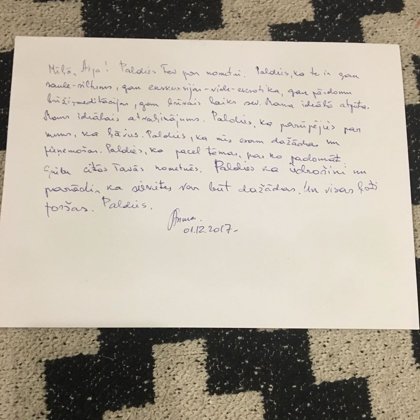 Mīļā, Asja! Paldies Tev par nometni. Paldies, ka te ir gan
saule-siltums, gan ekskursijas-vide-eksotika, gan pārdomu
brīži-meditācijas, gan brīvais laiks sev. Mana ideālā atpūta.
Mans ideālais atvaļinājums. Paldies, ka parūpējies par
mums, ka bērius. Paldies, ka mēs esam dažādas un
pieņemošas. Paldies, ka pacel tēmas, par ko padomāt.
citās Tavās nometnēs. Paldies ka iedrošini un
parādi, ka sievietes var būt dažādas. Un visas ļoti
foršas. Paldies.
01.12.2017.